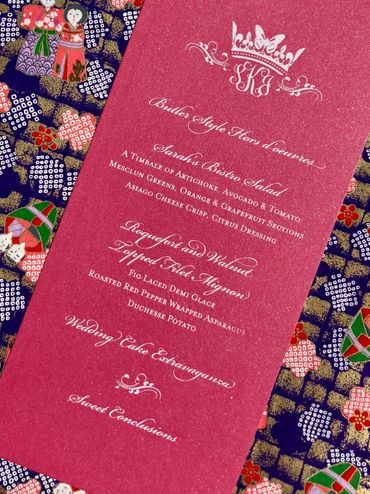 SKJ
Butler Style Hors d'oeuvres
Sarah's Bistro Salad
A Timbale of Artichoke, Avocado & Tomato
Mesclun Greens, Orange & Grapefruit Sections
Asiago Cheese Crisp, Citrus Dressing
Roquefort and Walnut
Topped Filet Mignon
Fig Laced Demi Glace
Roasted Red Pepper Wrapped Asparagus
Duchesse Potato
Wedding Cake Extravaganza
Sweet Conclusions